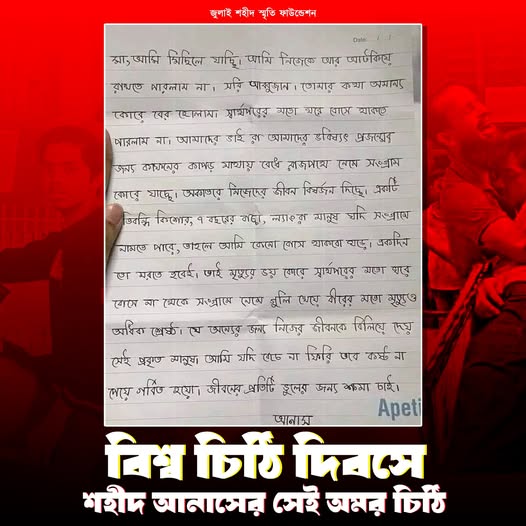 জুলাই শহীদ স্মৃতি ফাউন্ডেশন
Date: / /
মা, আমি মিছিলে যাচ্ছি। আমি নিজেকে আর আটকিয়ে
রাখতে পারলাম না। সরি আব্বুজান। তোমার কথা অমান্য
কোরে বের হোলাম। স্বার্থপরের মতো ঘরে বোসে থাকতে
পারলাম না। আমাদের ভাই রা আমাদের ভবিষ্যৎ প্রজন্মের
জন্য কাফনের কাপড় মাথায় বেধে রাজপথে নেমে সংগ্রাম
কোরে যাচ্ছে। অকাতরে নিজেদের জীবন বিষর্জন দিচ্ছে। একটি
তিবন্ধি কিশোর, ৭ বছরের বাচ্চা, ল্যাংরা মানুষ যদি সংগ্রামে
নামতে পারে, তাহলে আমি কেনো বোসে থাকবো ঘড়ে। একদিন
তো মরতে হবেই। তাই মৃত্যুর ভয় কোরে স্বার্থপরের মতো ঘরে
বোসে না থেকে সংগ্রামে নেমে গুলি খেয়ে বীরের মতো মৃত্যুও
অধিক শ্রেষ্ঠ। যে অন্যের জন্য নিজের জীবনকে বিলিয়ে দেয়
সেই প্রকৃত মানুষ। আমি যদি বেচে না ফিরি তবে কষ্ট না
পেয়ে গর্বিত হয়ো। জীবনের প্রতিটি ভুলের জন্য ক্ষমা চাই।
আনাস
Apeti
বিশ্ব চিঠি দিবসে
শহীদ আনাসের সেই অমর চিঠি